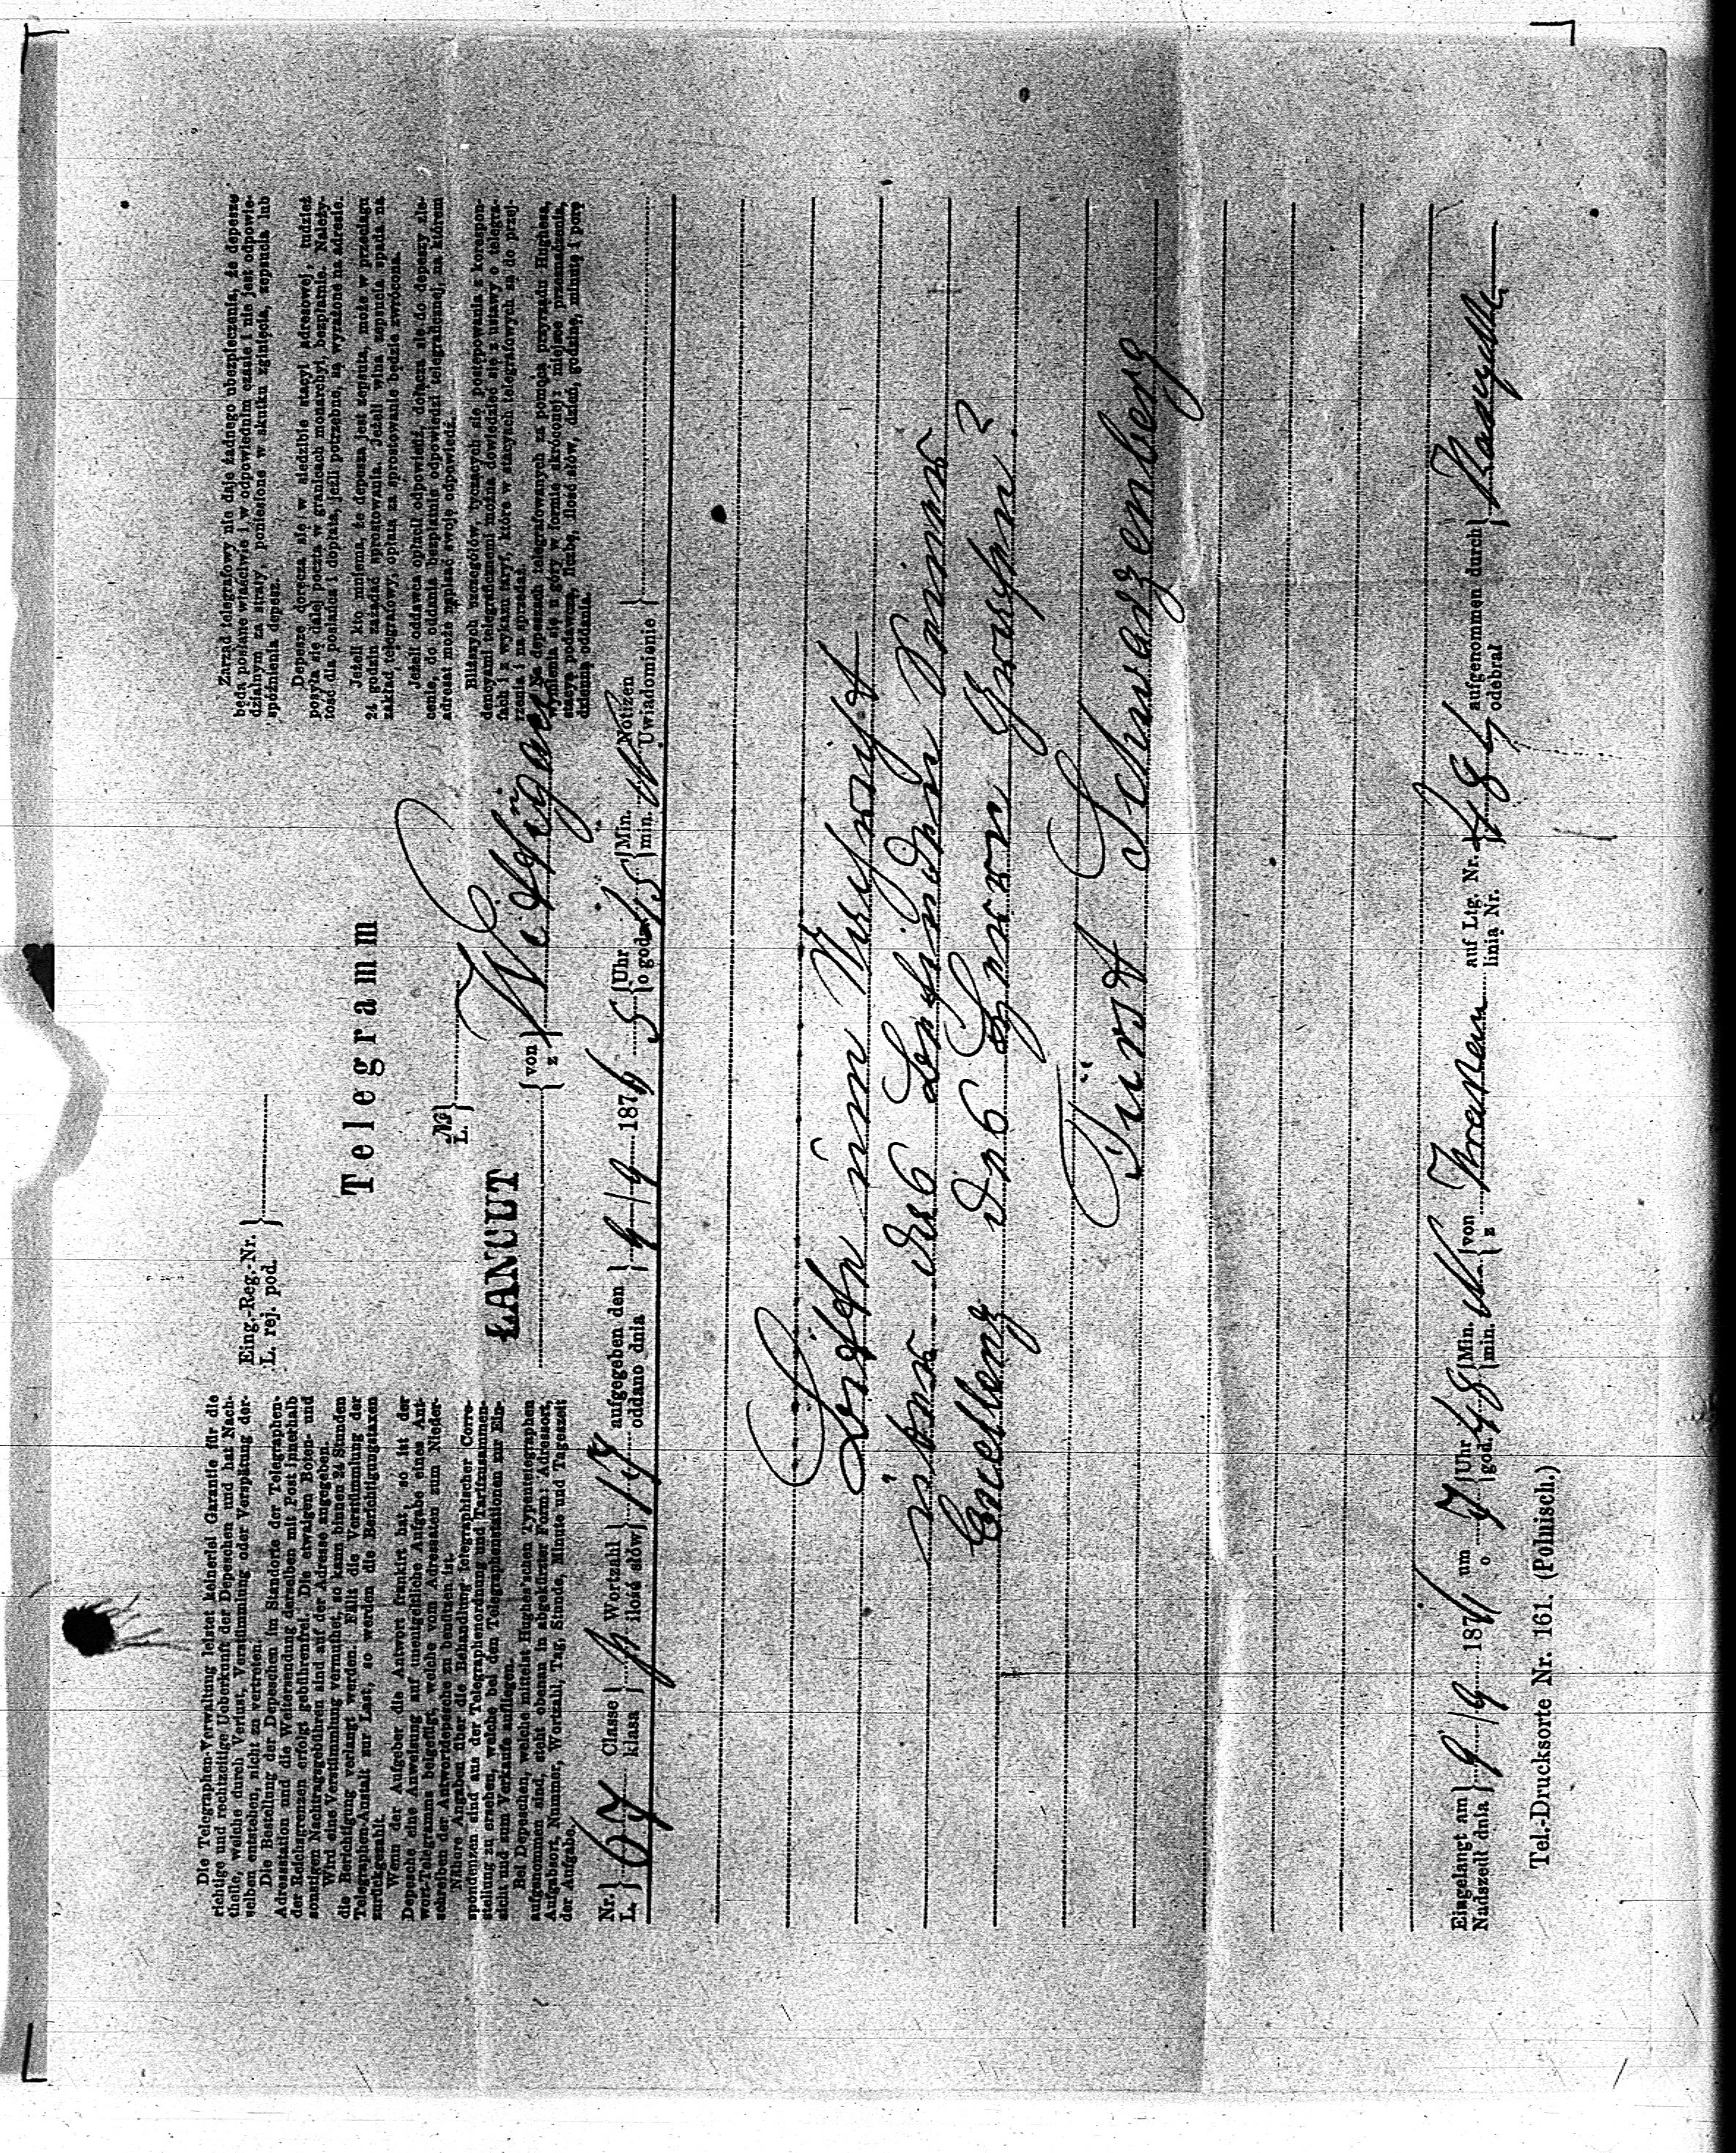 Die Telegraphen-Verwaltung leistet keinerlei Garantie für die
richtige und rechtzeitige Ueberkunft der Depeschen und hat Nach-
theile, welche durch Verlust, Verstümmlung oder Verspätung der-
selben entstehen, nicht zu vertreten.
Die Bestellung der Depeschen im Standorte der Telegraphen-
Adressstation und die Weitersendung derselben mit Post innerhalb
der Reichsgrenzen erfolgt gebührenfrei. Die etwaigen Boten- und
sonstigen Nachtragsgebühren sind auf der Adresse angegeben.
Wird eine Verstümmlung vermuthet, so kann binnen 24 Stunden
die Berichtigung verlangt werden. Fällt die Verstümmlung der
Telegraphen-Anstalt zur Last, so werden die Berichtigungstaxen
zurückgezahlt.
Wenn der Aufgeber die Antwort frankirt hat, so ist der
Depesche eine Anweisung auf unentgeltliche Aufgabe eines Ant-
wort-Telegramms beigefügt, welche vom Adressaten zum Nieder-
schreiben der Antwortdepesche zu benützen ist.
Nähere Angaben über die Behandlung telegraphischer Corre-
spondenzen sind aus der Telegraphenordnung und Tarifzusammen-
stellung zu ersehen, welche bei den Telegraphenstationen zur Ein-
sicht und zum Verkaufe aufliegen.
Bei Depeschen, welche mittelst Hughe'schen Typentelegraphen
aufgenommen sind, steht obenan in abgekürzter Form: Adressort,
Aufgabsort, Nummer, Wortzahl, Tag, Stunde, Minute und Tageszeit
der Aufgabe.
Eing.-Reg.-Nr.
L. rej. pod.
Telegramm
№
L.
ŁANCUT
von
z
Wittigau
Zarząd telegrafowy nie daje żadnego ubezpieczenia, że depesze
będą posłane właściwie i w odpowiednim czasie i nie jest odpowie-
dzialnym za straty, poniesione w skutku zginięcia, zepsucia lub
spóźnienia depesz.
Depesze doręcza się w siedzibie stacyi adresowej, tudzież
posyła się dalej pocztą w granicach monarchyi, bezpłatnie. Należy-
tość dla posłańca i dopłata, jeśli potrzebne, są wyrażone na adresie.
Jeżeli kto mniema, że depesza jest zepsuta, może w przeciągu
24 godzin zażądać sprostowania. Jeżeli wina zepsucia spada na
zakład telegrafowy, opłata za sprostowanie będzie zwrócona.
Jeżeli oddawca opłacił odpowiedź, dołącza się do depeszy zle-
cenie, do oddania bezpłatnie odpowiedzi telegraficznej, na którem
adresat może napisać swoję odpowiedź.
Bliższych szczegółów, tyczących się postępowania z korespon-
dencyami telegraficznemi można dowiedzieć się z ustawy o telegra-
fach i z wykazu taryf, które w stacyach telegrafowych są do przej-
rzenia i na sprzedaż.
Na depeszach telegrafowanych za pomocą przyrządu Hughesa,
wymienia się u góry w formie skróconej: miejsce przeznaczenia,
stacyę podawczą, liczbę, ilość słów, dzień, godzinę, minutę i porę
dzienną oddania.
Nr. L. 67 Classe klasa Wortzahl ilość słów 17 aufgegeben den oddano dnia 9/9 1876 5 Uhr o god. 45 Min. min. Notizen Uwiadomienie
Bitte um Nachricht
über das Befinden Seiner
Excellenz des Herrn Grafen?
Fürst Schwarzenberg
Eingelangt am Nadszedł dnia 9/9 1876 um o 7 Uhr god. 48 Min. min. von z Krakau auf Ltg. Nr. linia Nr. aufgenommen durch odebrał
Tel.-Drucksorte Nr. 161. (Polnisch.)